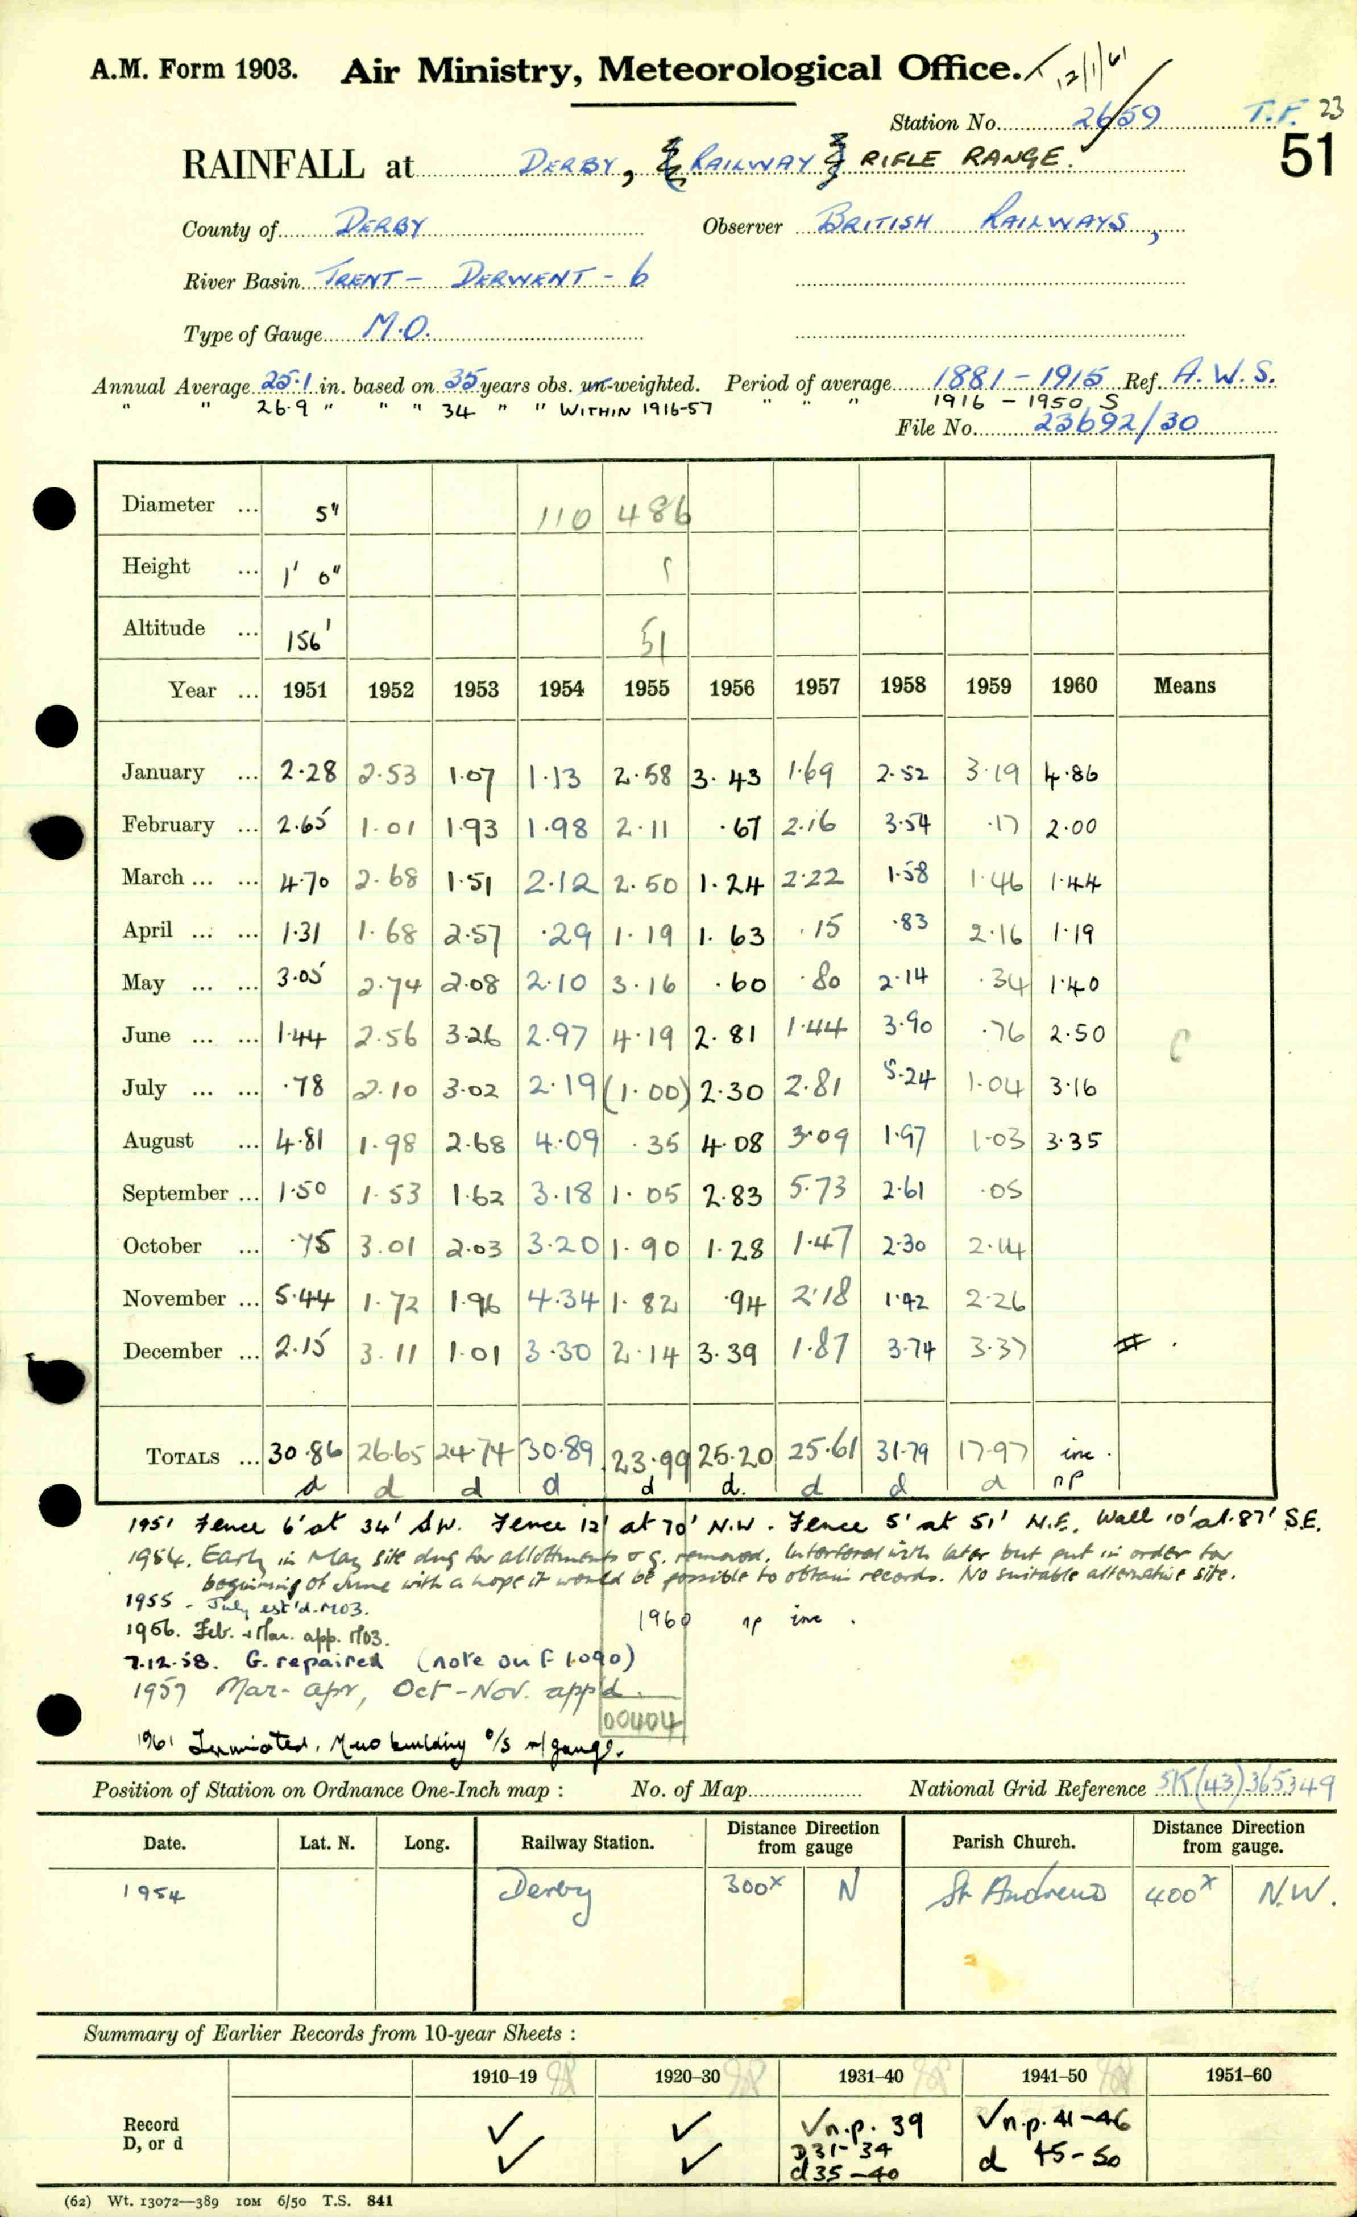 A.M. Form 1903. Air Ministry, Meteorological Office. 12/1/61
Station No. 2659 T.F. 23
RAINFALL at DERBY, (RAILWAY) RIFLE RANGE. 51
County of DERBY Observer BRITISH RAILWAYS,
River Basin TRENT - DERWENT - 6
Type of Gauge M.O.
Annual Average 25.1 in. based on 35 years obs. un-weighted. Period of average 1881-1915 Ref. A.W.S.
" " 26.9 " " " 34 " " WITHIN 1916-57 " " " 1916 - 1950 S
File No. 23692/30
Diameter ... 5" 110 486
Height ... 1' 0"
Altitude ... 156' 51
Year ... 1951 1952 1953 1954 1955 1956 1957 1958 1959 1960 Means
January ... 2.28 2.53 1.07 1.13 2.58 3.43 1.69 2.52 3.19 4.86
February ... 2.65 1.01 1.93 1.98 2.11 .67 2.16 3.54 .17 2.00
March ... ... 4.70 2.68 1.51 2.12 2.50 1.24 2.22 1.58 1.46 1.44
April ... ... 1.31 1.68 2.57 .29 1.19 1.63 .15 .83 2.16 1.19
May ... ... 3.05 2.74 2.08 2.10 3.16 .60 .80 2.14 .34 1.40
June ... ... 1.44 2.56 3.26 2.97 4.19 2.81 1.44 3.90 .76 2.50
July ... ... .78 2.10 3.02 2.19 (1.00) 2.30 2.81 5.24 1.04 3.16
August ... 4.81 1.98 2.68 4.09 .35 4.08 3.09 1.97 1.03 3.35
September ... 1.50 1.53 1.62 3.18 1.05 2.83 5.73 2.61 .05
October ... .75 3.01 2.03 3.20 1.90 1.28 1.47 2.30 2.14
November ... 5.44 1.72 1.96 4.34 1.82 .94 2.18 1.42 2.26
December ... 2.15 3.11 1.01 3.30 2.14 3.39 1.87 3.74 3.37
TOTALS ... 30.86 26.65 24.74 30.89 23.99 25.20 25.61 31.79 17.97 inc.
d d d d d d. d d d np
1951 Fence 6' at 34' SW. Fence 12' at 70' N.W. Fence 5' at 51' N.E. Wall 10' at 87' S.E.
1954. Early in May site dug for allottments & g. removed. Interfered with later but put in order for
beginning of June with a hope it would be possible to obtain records. No suitable alternative site.
1955 - July est'd. M03.
1956. Feb. & Mar. app. M03. 1960 np inc.
7.12.58. G. repaired (note on F 1090)
1959 Mar- apr, Oct-Nov. app'd.
00404
1961 Terminated. building o/s gauge.
Position of Station on Ordnance One-Inch map : No. of Map National Grid Reference SK(43)365349
Date. Lat. N. Long. Railway Station. Distance Direction from gauge Parish Church. Distance Direction from gauge.
1954 Derby 300x N St Andrews 400x N.W.
Summary of Earlier Records from 10-year Sheets :
1910-19 1920-30 1931-40 1941-50 1951-60
Record ✓ ✓ ✓n.p. 39 ✓n.p. 41-46
D, or d ✓ ✓ D31-34 d 45-50
d35-40
(62) Wt. 13072—389 10M 6/50 T.S. 841